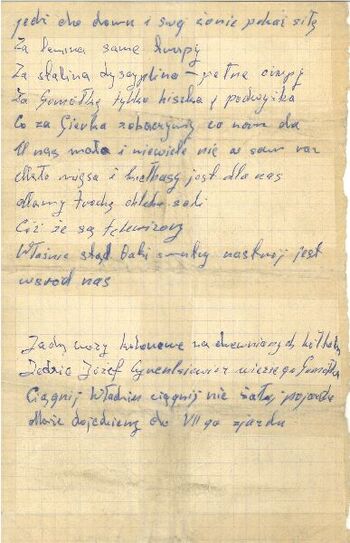 jedź cho domu i swej żonie pokaż siłę
Za Lenina same krupy
Za stalina dyscyplina – pełne
Za Gomółkę tylko kiszka i podwyżka
Co za Gierka zobaczymy co nam da
U nas mało i niewiele nie w sam raz
mięsa i kiełbasy jest dla nas
Mamy trochę chleba soli
Cóż że są telewizory
Właśnie stąd taki smutny nastrój jest
wsród nas
wozy kolonowe na drewnianych
Jedzie Józef Cyrenkiewicz wiezie go Gomółka
Ciągnij Władziu ciągnij nie żałuj
dojedziemy do VII go zjazdu